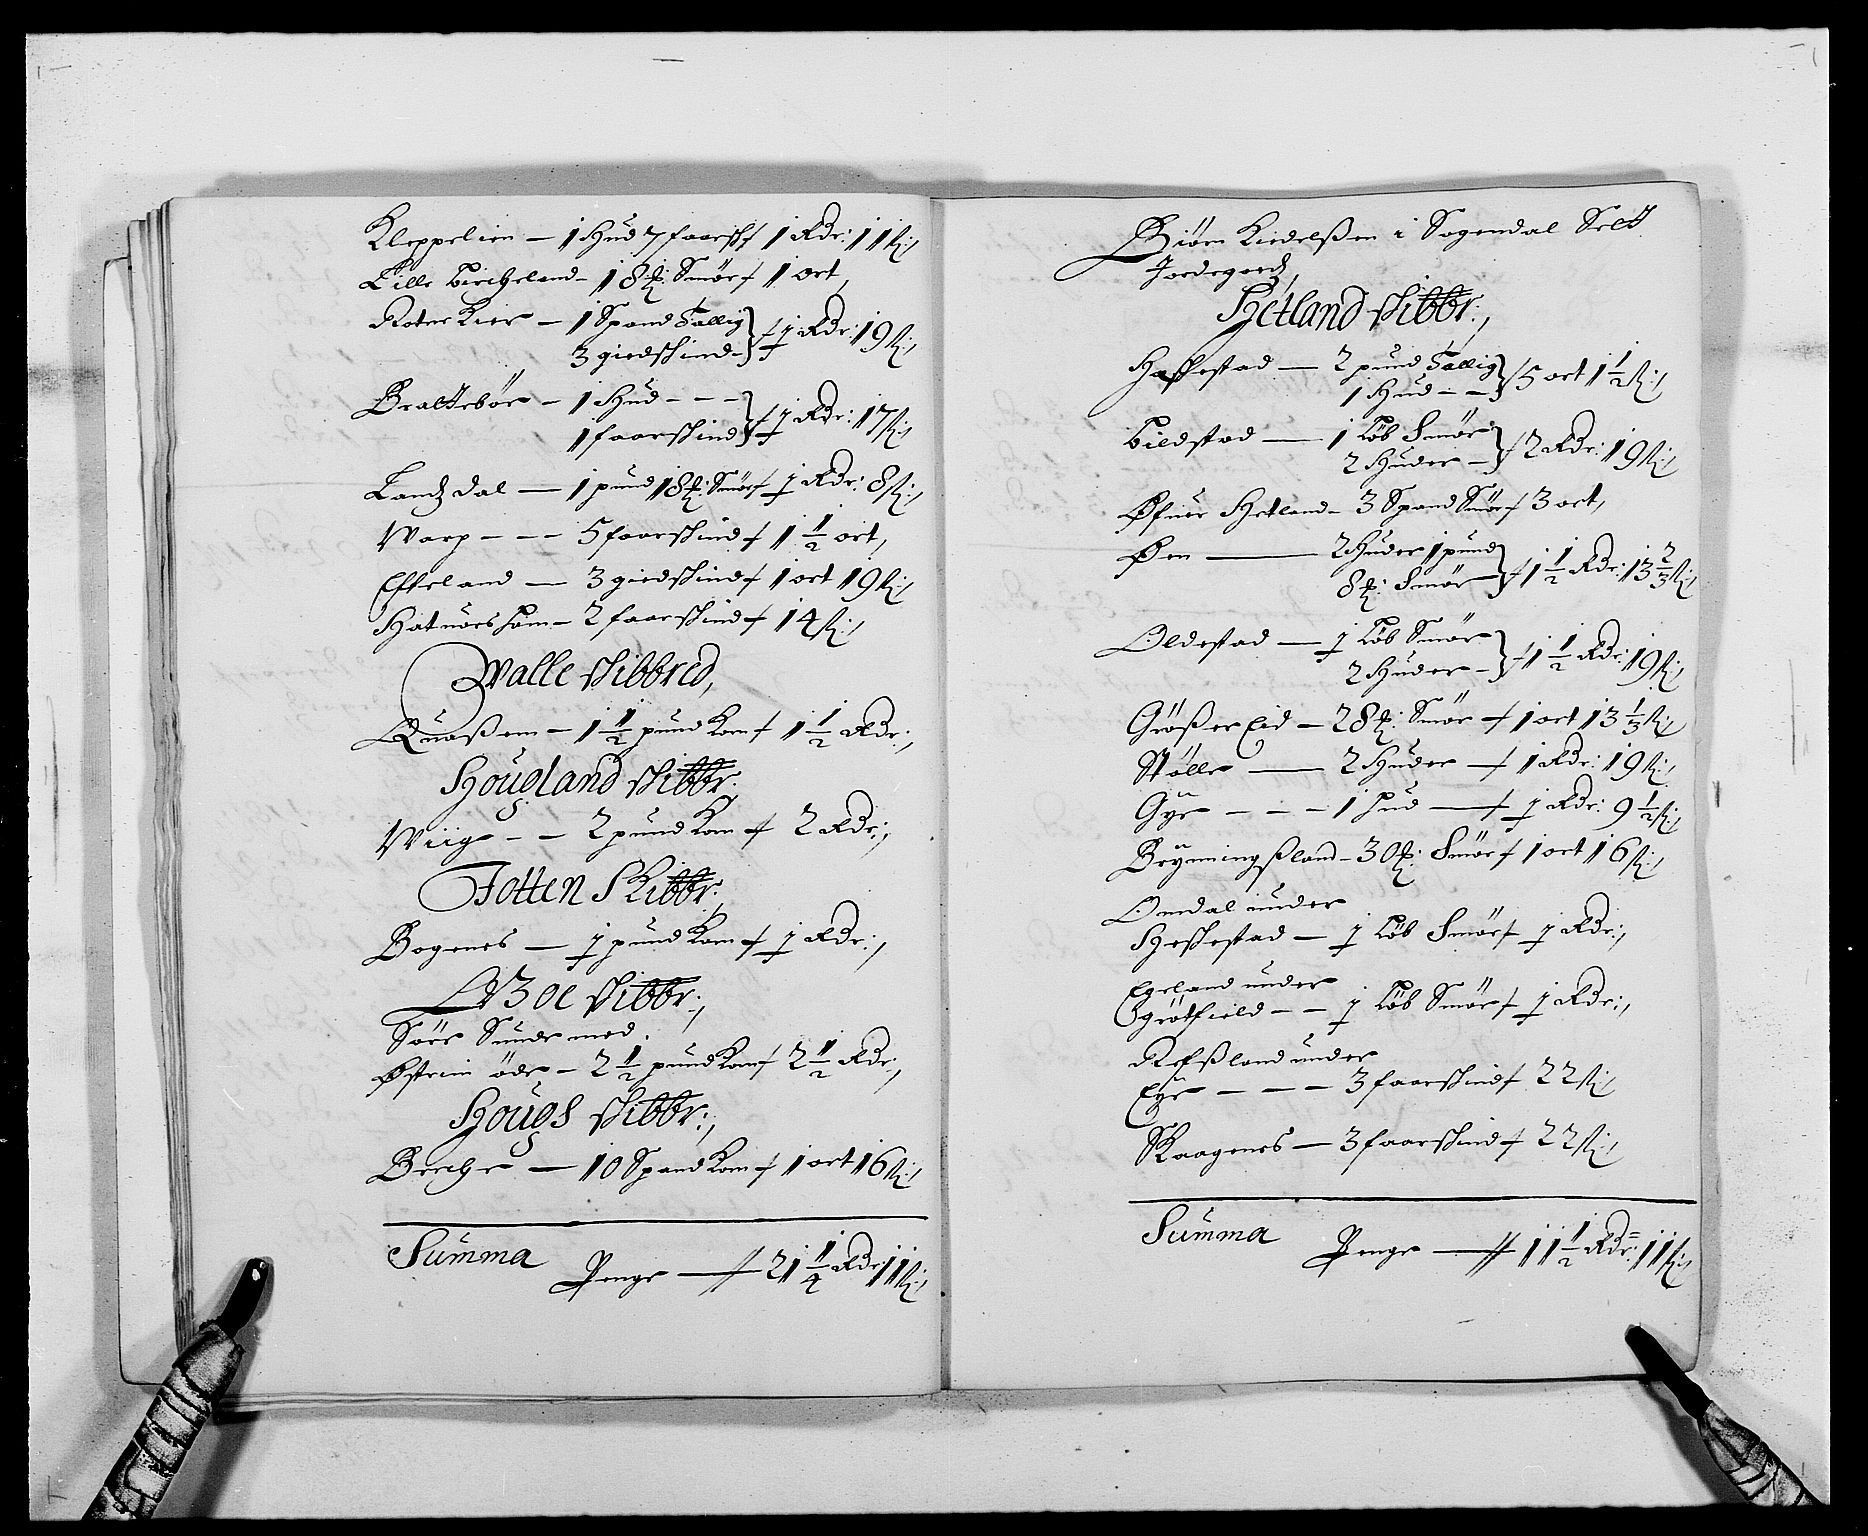 Kleppelien — 1 Hud 7 faarsk f 1 Rdr: 11 ß:/
Lille Bircheland - 18 ℔: Smör f 1 ort,
Roterkier — 1 Spand Sallig
3 giedskind - } f 1 Rdr: 19 ß:/
Brattebör - 1 Hud - - -
1 faarskind } f 1 Rdr: 17 ß:/
Landzdal — 1 pund 18 ℔: Smör f 1 Rdr: 8 ß:/
Warp - - - 5 faarskind f 1 1/2 ort,
Efteland — 3 giedskind f 1 ort 19 ß:/
— 2 faarskind f 14 ß:/
Walle skibbred,
Quaßem - 1 1/2 pund Korn f 1 1/2 Rdr:,
Hougland skibbr:
Wiig - - 2 pund Korn f 2 Rdr:,
Jotten Skibbr:,
Bogenes — 1 pund Korn f 1 Rdr:,
Boe skibbr:,
Sörr Sunde med
Østrim öde - 2 1/2 pund Korn f 2 1/2 Rdr:,
Hougs skibbr:,
Berche — 10 Spand Korn f 1 ort 16 ß:/
Summa
Penge — 21 1/4 Rdr: 11 ß:/
Biörn Kiedelßen i Sogendal Selt
Jordegodz,
Hetland skibbr:,
Haffestad — 2 pund Sallig
1 Hud - - } f 5 ort 1 1/2 ß:/
Bildstad — 1 Löb Smör
2 Huder - } f 2 Rdr: 19 ß:/
Øfuer Hetland - 3 Spand Smör f 3 ort,
Øen — 2 Huder 1 pund
8 ℔: Smör } f 1 1/2 Rdr: 13 2/3 ß:/
Oldestad — 1 Löb Smör
2 Huder - } f 1 1/2 Rdr: 19 ß:/
Größ er Eid - 28 ℔: Smör f 1 ort 13 1/3 ß:/
Stölle — 2 Huder — f 1 Rdr: 19 ß:/
Gÿe - - - 1 Hud — f 1 Rdr: 9 1/2 ß:/
Brÿnningßland - 30 ℔: Smör f 1 ort 16 ß:/
Omdal under
Heskestad — 1 Löb Smör f 1 Rdr:,
Egeland under
Grötfield - - 1 Löb Smör f 1 Rdr:,
Refßland under
Eÿe - - - 3 faarskind f 22 ß:/
Skaagenes — 3 faarskind f 22 ß:/
Summa
Penge — 11 1/2 Rdr: 11 ß:/